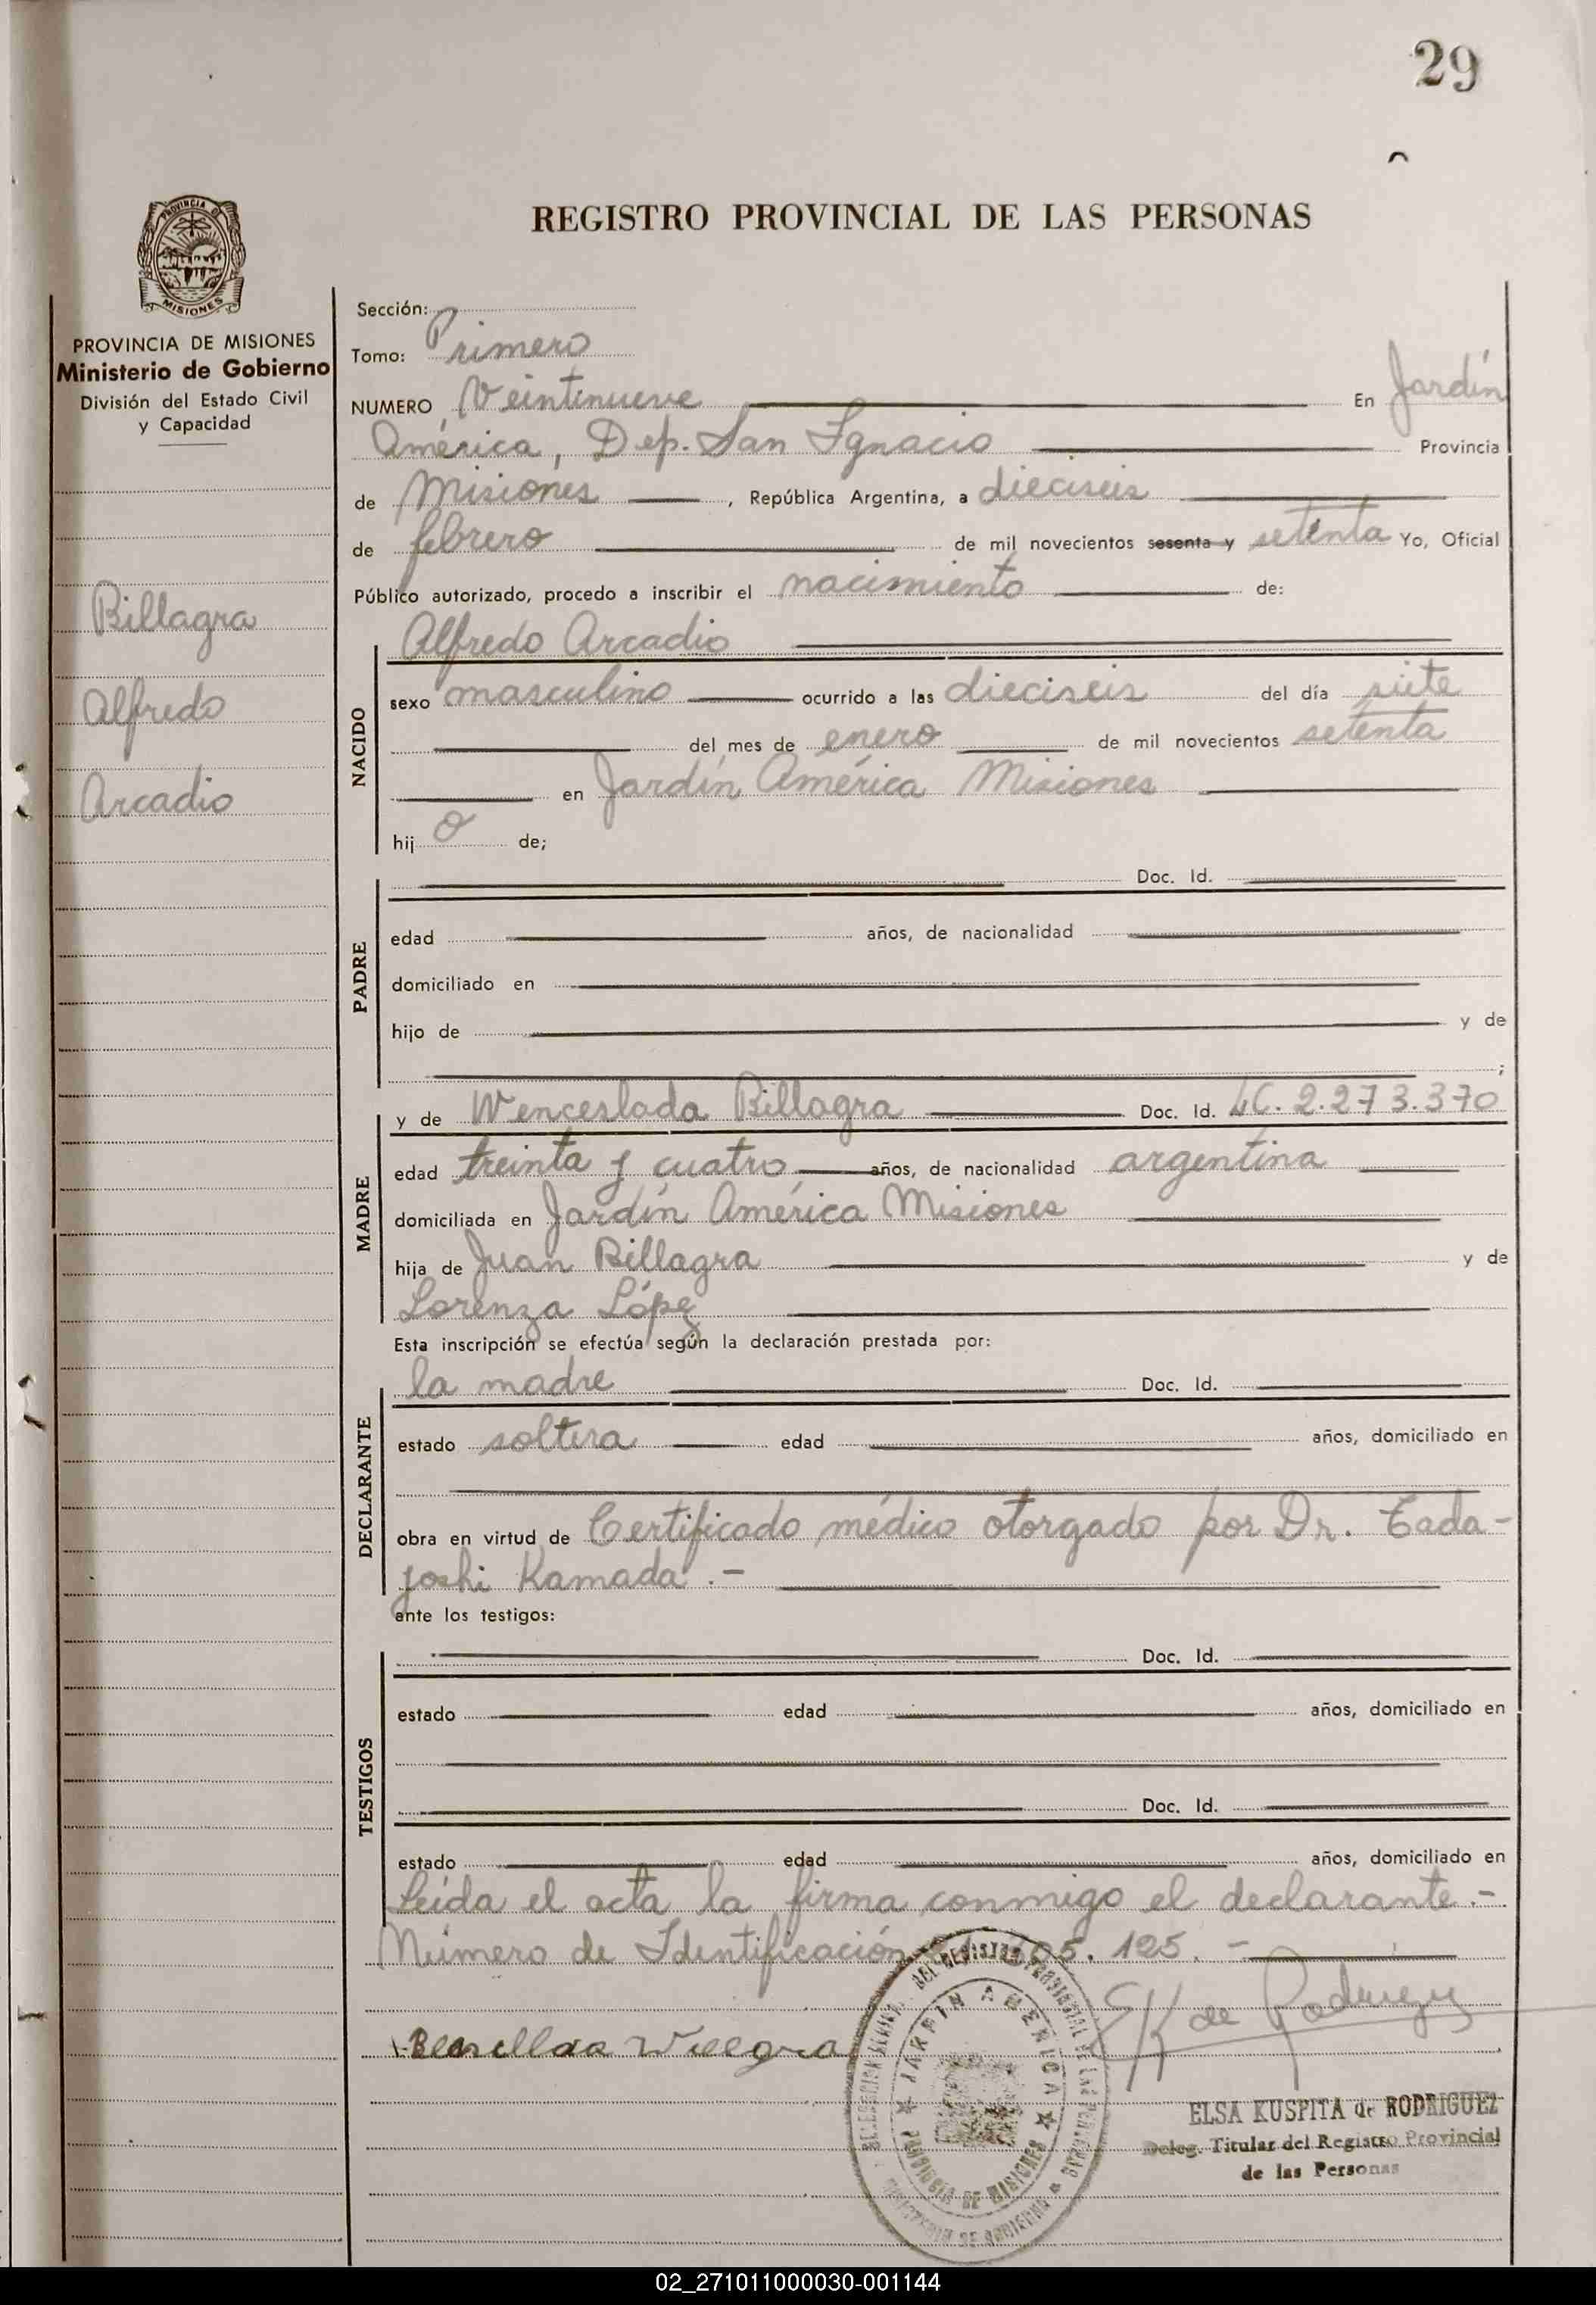 29
REGISTRO PROVINCIAL DE LAS PERSONAS
PROVINCIA DE MISIONES
Ministerio de Gobierno
División del Estado Civil
y Capacidad
Billagra
Alfredo
Arcadio
Sección:
Tomo: Primero
NUMERO Veintinueve En Jardín
América, Dep. San Ignacio Provincia
de Misiones, República Argentina, a dieciseis
de febrero de mil novecientos sesenta y setenta Yo, Oficial
Público autorizado, procedo a inscribir el nacimiento de:
Alfredo Arcadio
NACIDO
sexo masculino ocurrido a las dieciseis del día siete
del mes de enero de mil novecientos setenta
en Jardín América Misiones
hijo de;
PADRE
Doc. Id.
edad años, de nacionalidad
domiciliado en
hijo de y de
;
MADRE
y de Wenceslada Billagra Doc. Id. LC. 2.273.370
edad treinta y cuatro años, de nacionalidad argentina
domiciliada en Jardín América Misiones
hija de Juan Billagra y de
Lorenza López
Esta inscripción se efectúa según la declaración prestada por:
DECLARANTE
la madre Doc. Id.
estado soltera edad años, domiciliado en
obra en virtud de Certificado médico otorgado por Dr. Tada-
joshi Kamada.-
ante los testigos:
TESTIGOS
Doc. Id.
estado edad años, domiciliado en
Doc. Id.
estado edad años, domiciliado en
Leída el acta la firma conmigo el declarante.-
Número de Identificación 125.-
EK de Rodriguez
JARDIN AMERICA
PROVINCIA DE MISIONES
ELSA KUSPITA de RODRIGUEZ
Deleg. Titular del Registro Provincial
de las Personas
02_271011000030-001144